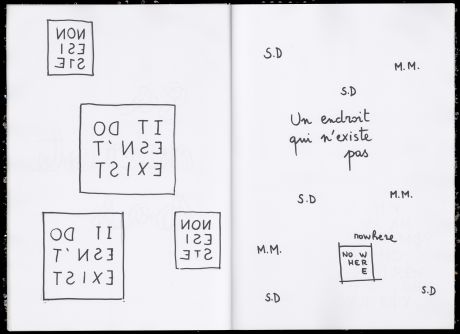 NON
ESI
STE
IT DO
ESN'T
EXIST
IT DO
ESN'T
EXIST
NON
ESI
STE
S.D
M.M.
S.D
Un endroit
qui n'existe
pas
S.D
M.M.
nowhere
M.M.
NO W
HER
E
S.D
S.D